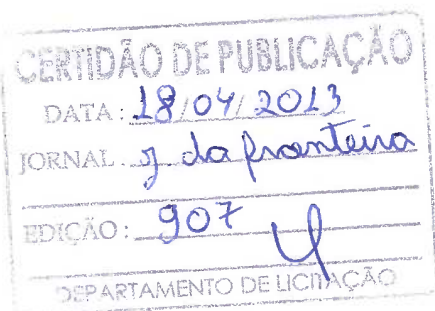 CERTIDÃO DE PUBLICAÇÃO
DATA: 18/04/2013
JORNAL J da fronteira
EDIÇÃO: 907
DEPARTAMENTO DE LICITAÇÃO